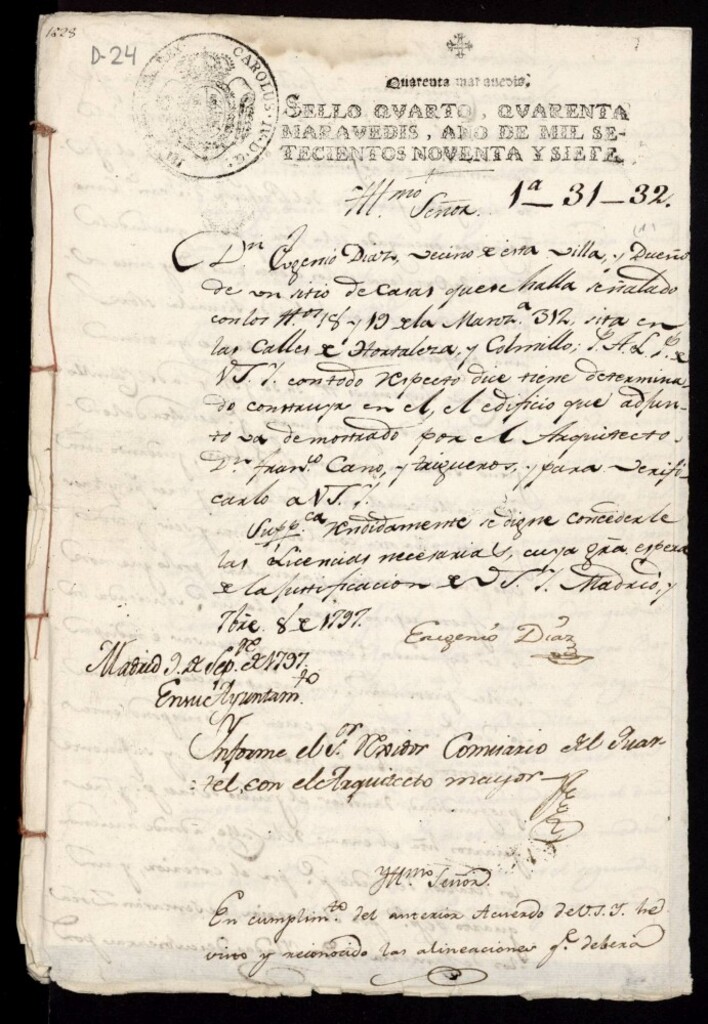 1528
D-24
CAROLUS·IV·D·G·
Quarenta maravedis.
SELLO QVARTO, QVARENTA
MARAVEDIS, AÑO DE MIL SE-
TECIENTOS NOVENTA Y SIETE.
Yllmo Señor.
1ª-31-32.
Dn. Eugenio Diaz, vecino de esta villa, y Dueño
de un sitio de casas que se halla señalado
con los Nos. 18 y 19 de la Manzª. 312, sita en
las Calles de Hortaleza, y Colmillo; P. A. L. P. de
V.S.Y. con todo respecto dice tiene determina-
do construir en el, el edificio que adjun-
to va demostrado por el Arquitecto
Dn. franco. Cano, y trigueros, y para verifi-
carlo a V.S.Y.
Suppca. rendidamente se digne concederle
las Licencias necesarias, cuya gra. espera
de la justificacion de V.S.Y. Madrid, y
7bre. 8 de 1797.
Eugenio Diaz
Madrid 9. de Sepre. de 1797.
En su Ayuntamto.
Informe el Sor. Rexidor Comisario del Quar-
tel con el Arquitecto mayor
Yllmo Señor
En cumplimto. del anterior Acuerdo de V.S.Y. he
visto y reconocido las alineaciones qe. deberá